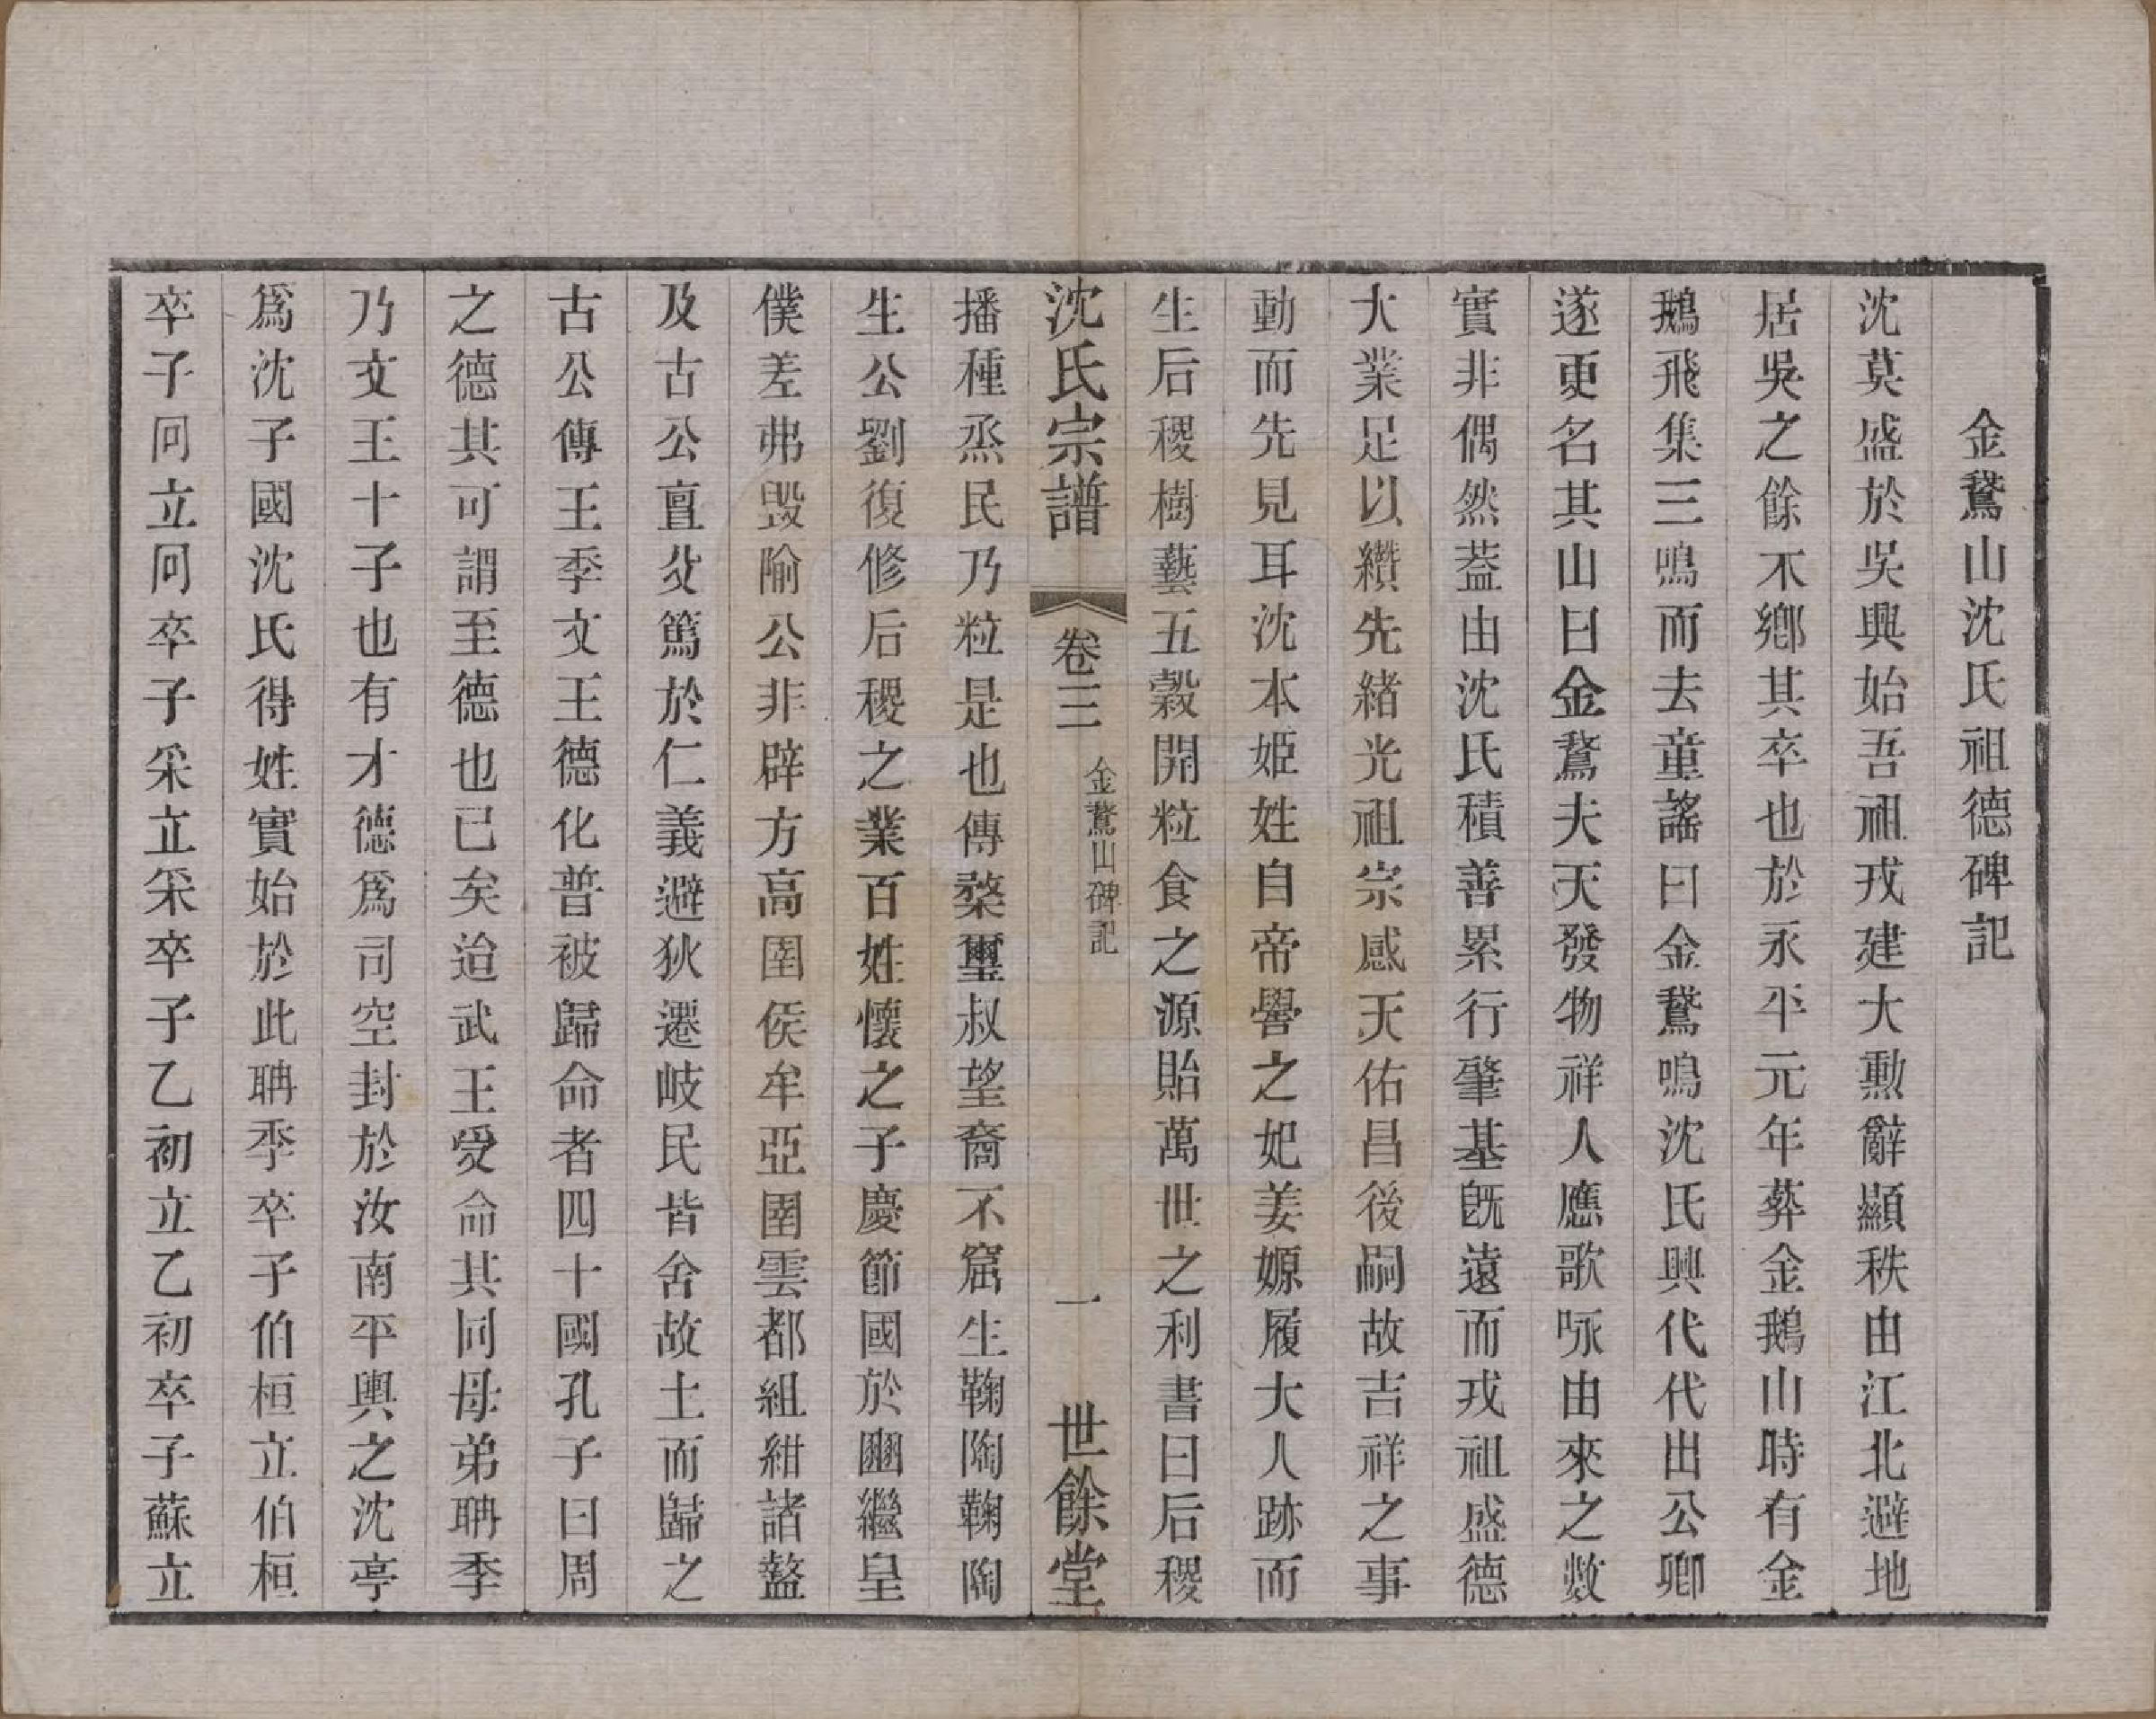 金鵞山沈氏祖德碑記
沈莫盛於吳興始吾祖戎建大勲辭顯秩由江北避地
居吳之餘不鄉其卒也於永平元年葬金鵝山時有金
鵝飛集三鳴而去童謠曰金鵞鳴沈氏興代代出公卿
遂更名其山曰金鵞夫天發物祥人應歌咏由來之數
實非偶然葢由沈氏積善累行肇基旣遠而戎祖盛德
大業足以纘先緒光祖宗感天佑昌後嗣故吉祥之事
動而先見耳沈本姬姓自帝嚳之妃姜嫄履大人跡而
生后稷樹藝五穀開粒食之源貽萬世之利書曰后稷
沈氏宗譜
卷三
金鵞山碑記
一
世餘堂
播種烝民乃粒是也傳漦璽叔望裔不窟生鞠陶鞠陶
生公劉復修后稷之業百姓懷之子慶節國於豳繼皇
僕差弗毁隃公非辟方高圉侯牟亞圉雲都組紺諸盩
及古公亶父篤於仁義避狄遷岐民皆舍故土而歸之
古公傳王季文王德化普被歸命者四十國孔子曰周
之德其可謂至德也已矣迨武王受命其同母弟聃季
乃文王十子也有才德爲司空封於汝南平輿之沈亭
爲沈子國沈氏得姓實始於此聃季卒子伯桓立伯桓
卒子冋立冋卒子采立采卒子乙初立乙初卒子蘇立